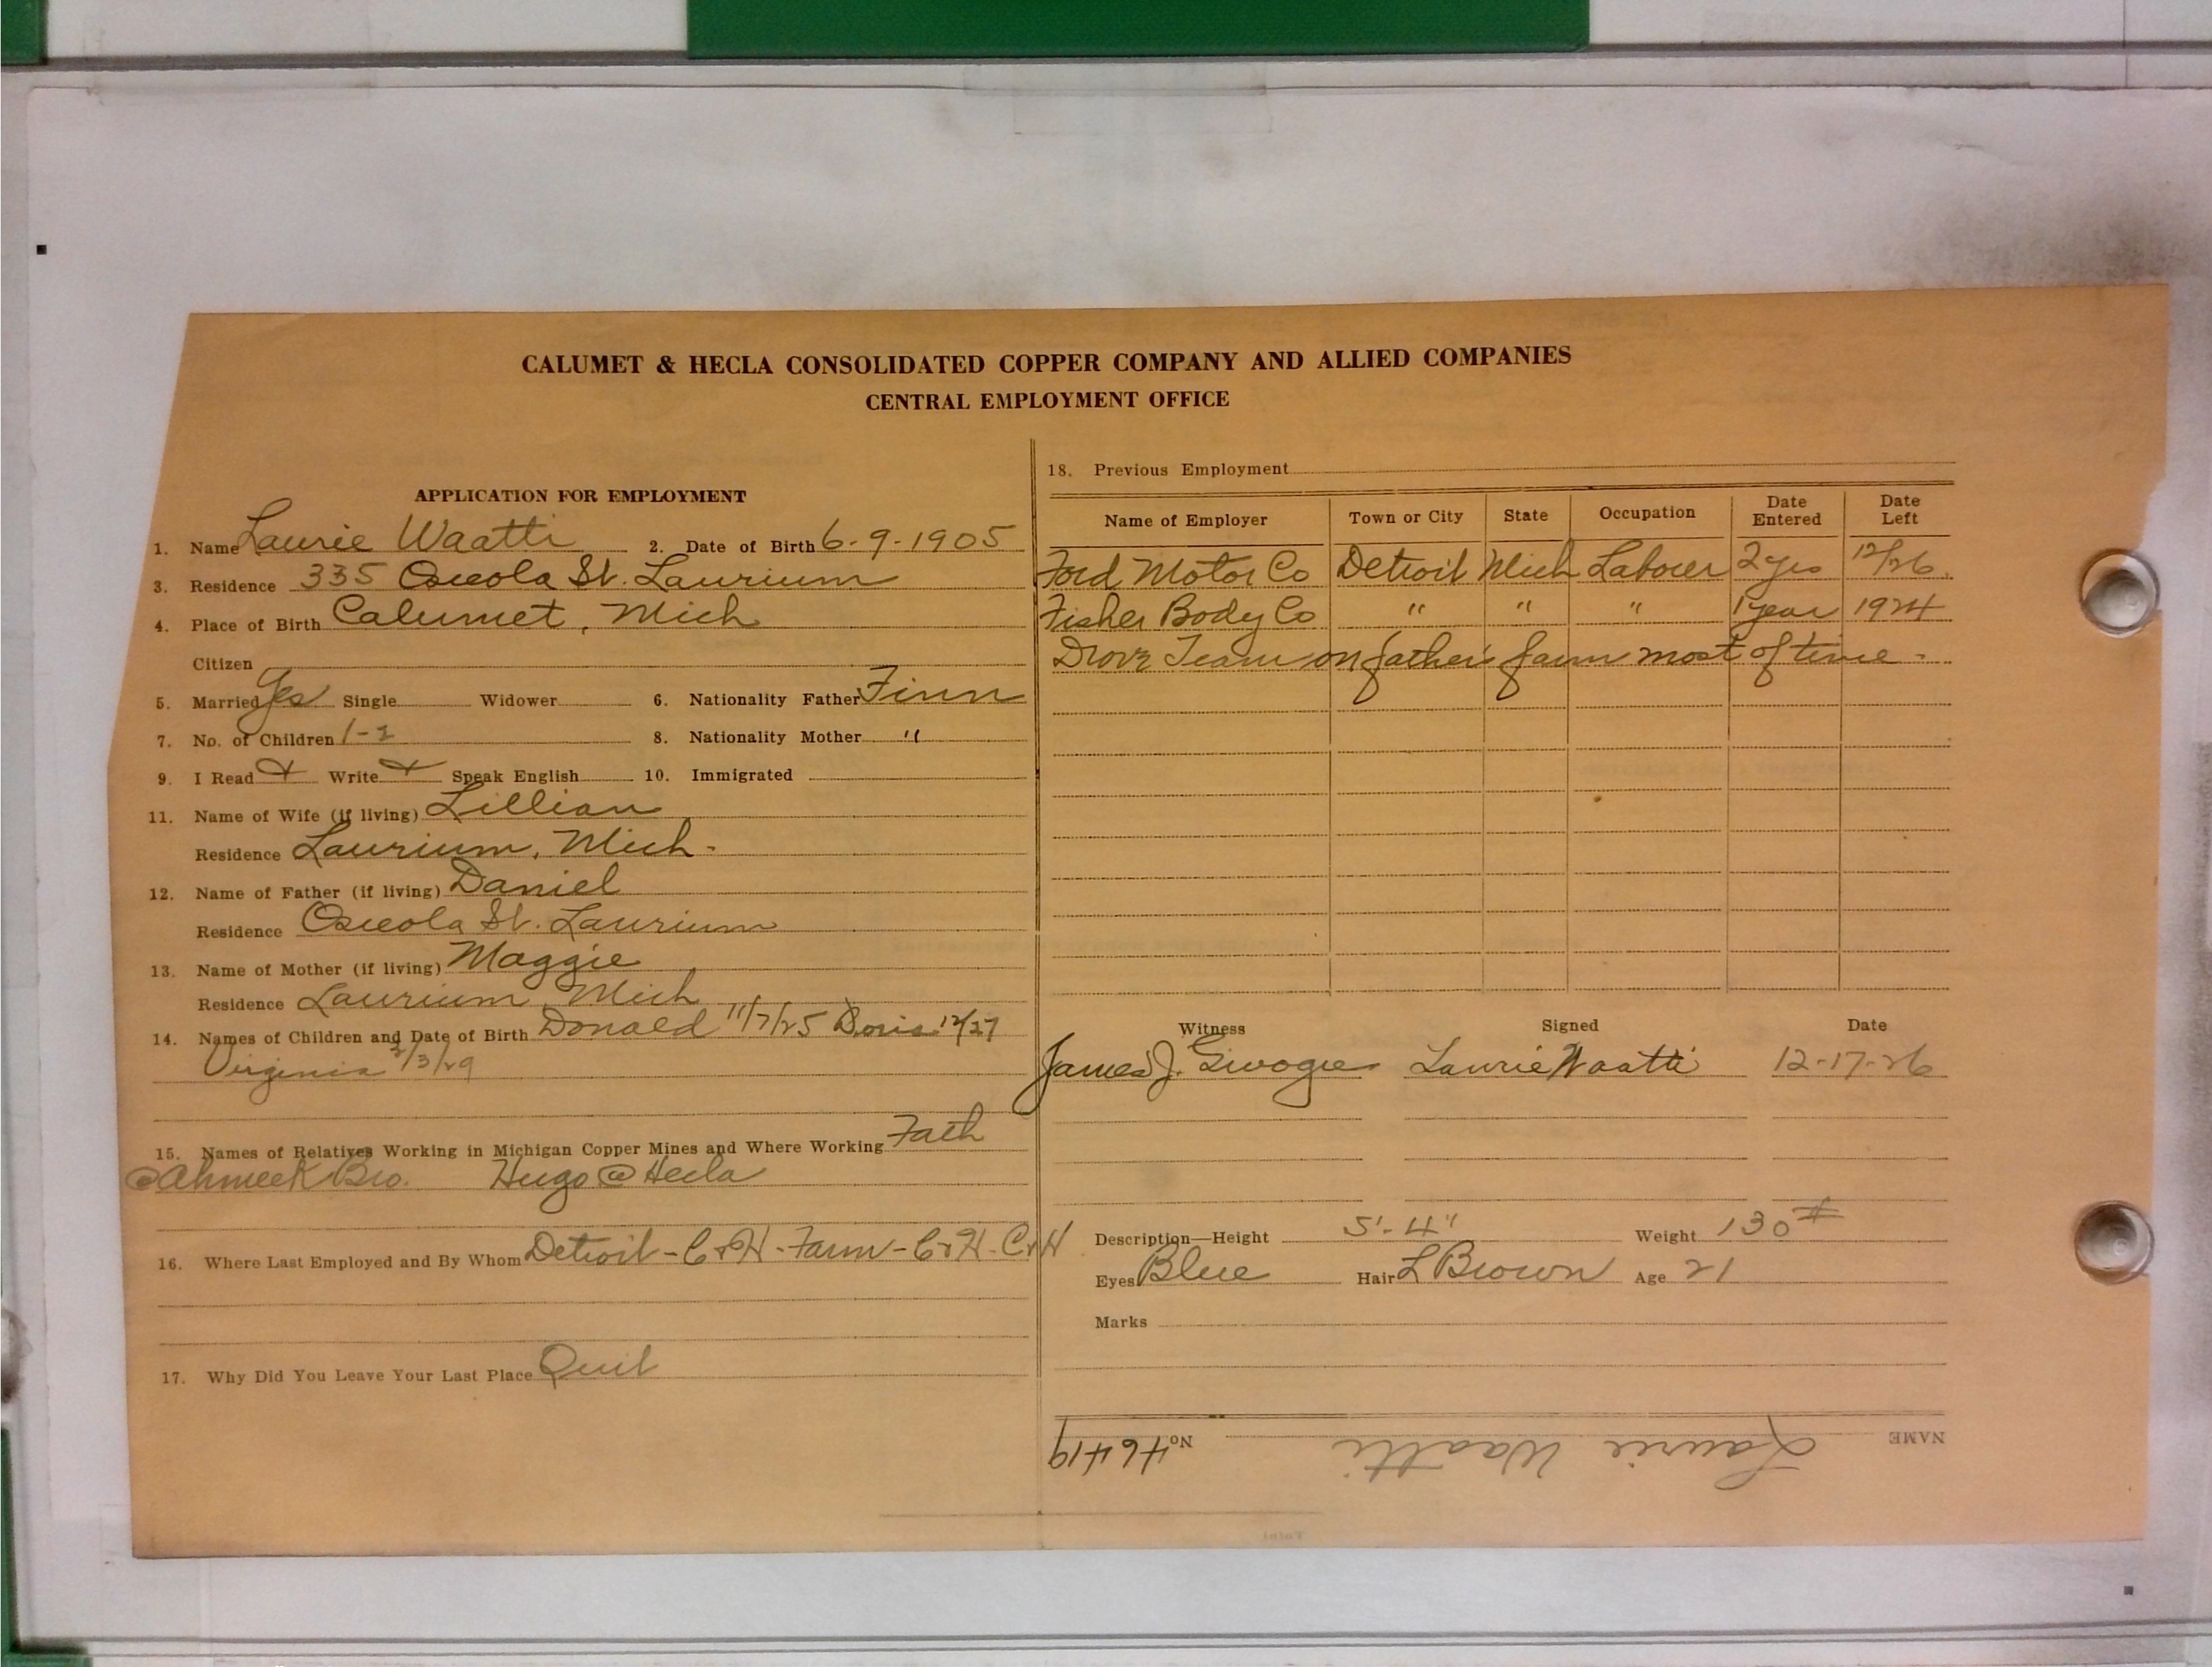 CALUMET & HECLA CONSOLIDATED COPPER COMPANY AND ALLIED COMPANIES
CENTRAL EMPLOYMENT OFFICE
APPLICATION FOR EMPLOYMENT
1. Name Laurie Waatti 2. Date of Birth 6-9-1905
3. Residence 335 Osceola St. Laurium
4. Place of Birth Calumet, Mich
Citizen
5. Married Yes Single Widower 6. Nationality Father Finn
7. No. of Children 1-2 8. Nationality Mother "
9. I Read Write Speak English 10. Immigrated
11. Name of Wife (if living) Lillian
Residence Laurium, Mich.
12. Name of Father (if living) Daniel
Residence Osceola St. Laurium
13. Name of Mother (if living) Maggie
Residence Laurium, Mich
14. Names of Children and Date of Birth Donald 11/7/25 Doris 12/27
Virginia /3/29
15. Names of Relatives Working in Michigan Copper Mines and Where Working Fath
@ Ahmeek Bro. Hugo @ Hecla
16. Where Last Employed and By Whom Detroit - C&H - Farm - C&H - C&H
17. Why Did You Leave Your Last Place Quit
18. Previous Employment
Name of Employer Town or City State Occupation Date Entered Date Left
Ford Motor Co Detroit Mich Laborer 2 yrs 12/26
Fisher Body Co " " " 1 year 1924
Drove Team on father's farm most of time.
Witness Signed Date
James J. Laurie Waatti 12-17-26
Description—Height 5'-4" Weight 130#
Eyes Blue Hair L Brown Age 21
Marks
NAME Laurie Waatti No. 46419